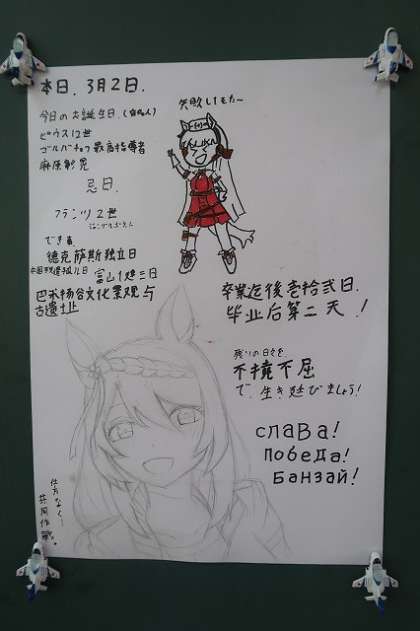 本日、3月2日.
今日のお誕生日、(有名人)
ピウス12世
ゴルバチョフ最高指導者
麻原彰晃
忌日.
フランツ2世
でき事
德克萨斯独立日
中国残還孤児日
富山大逆三日
巴米扬谷文化景观与
古遗址
失敗してもた〜
卒業迄後壱拾弐日.
毕业后第二天!
残りの日々を
不撓不屈
で、生き延びましょう!
слава!
победа!
банзай!
仕方なく…